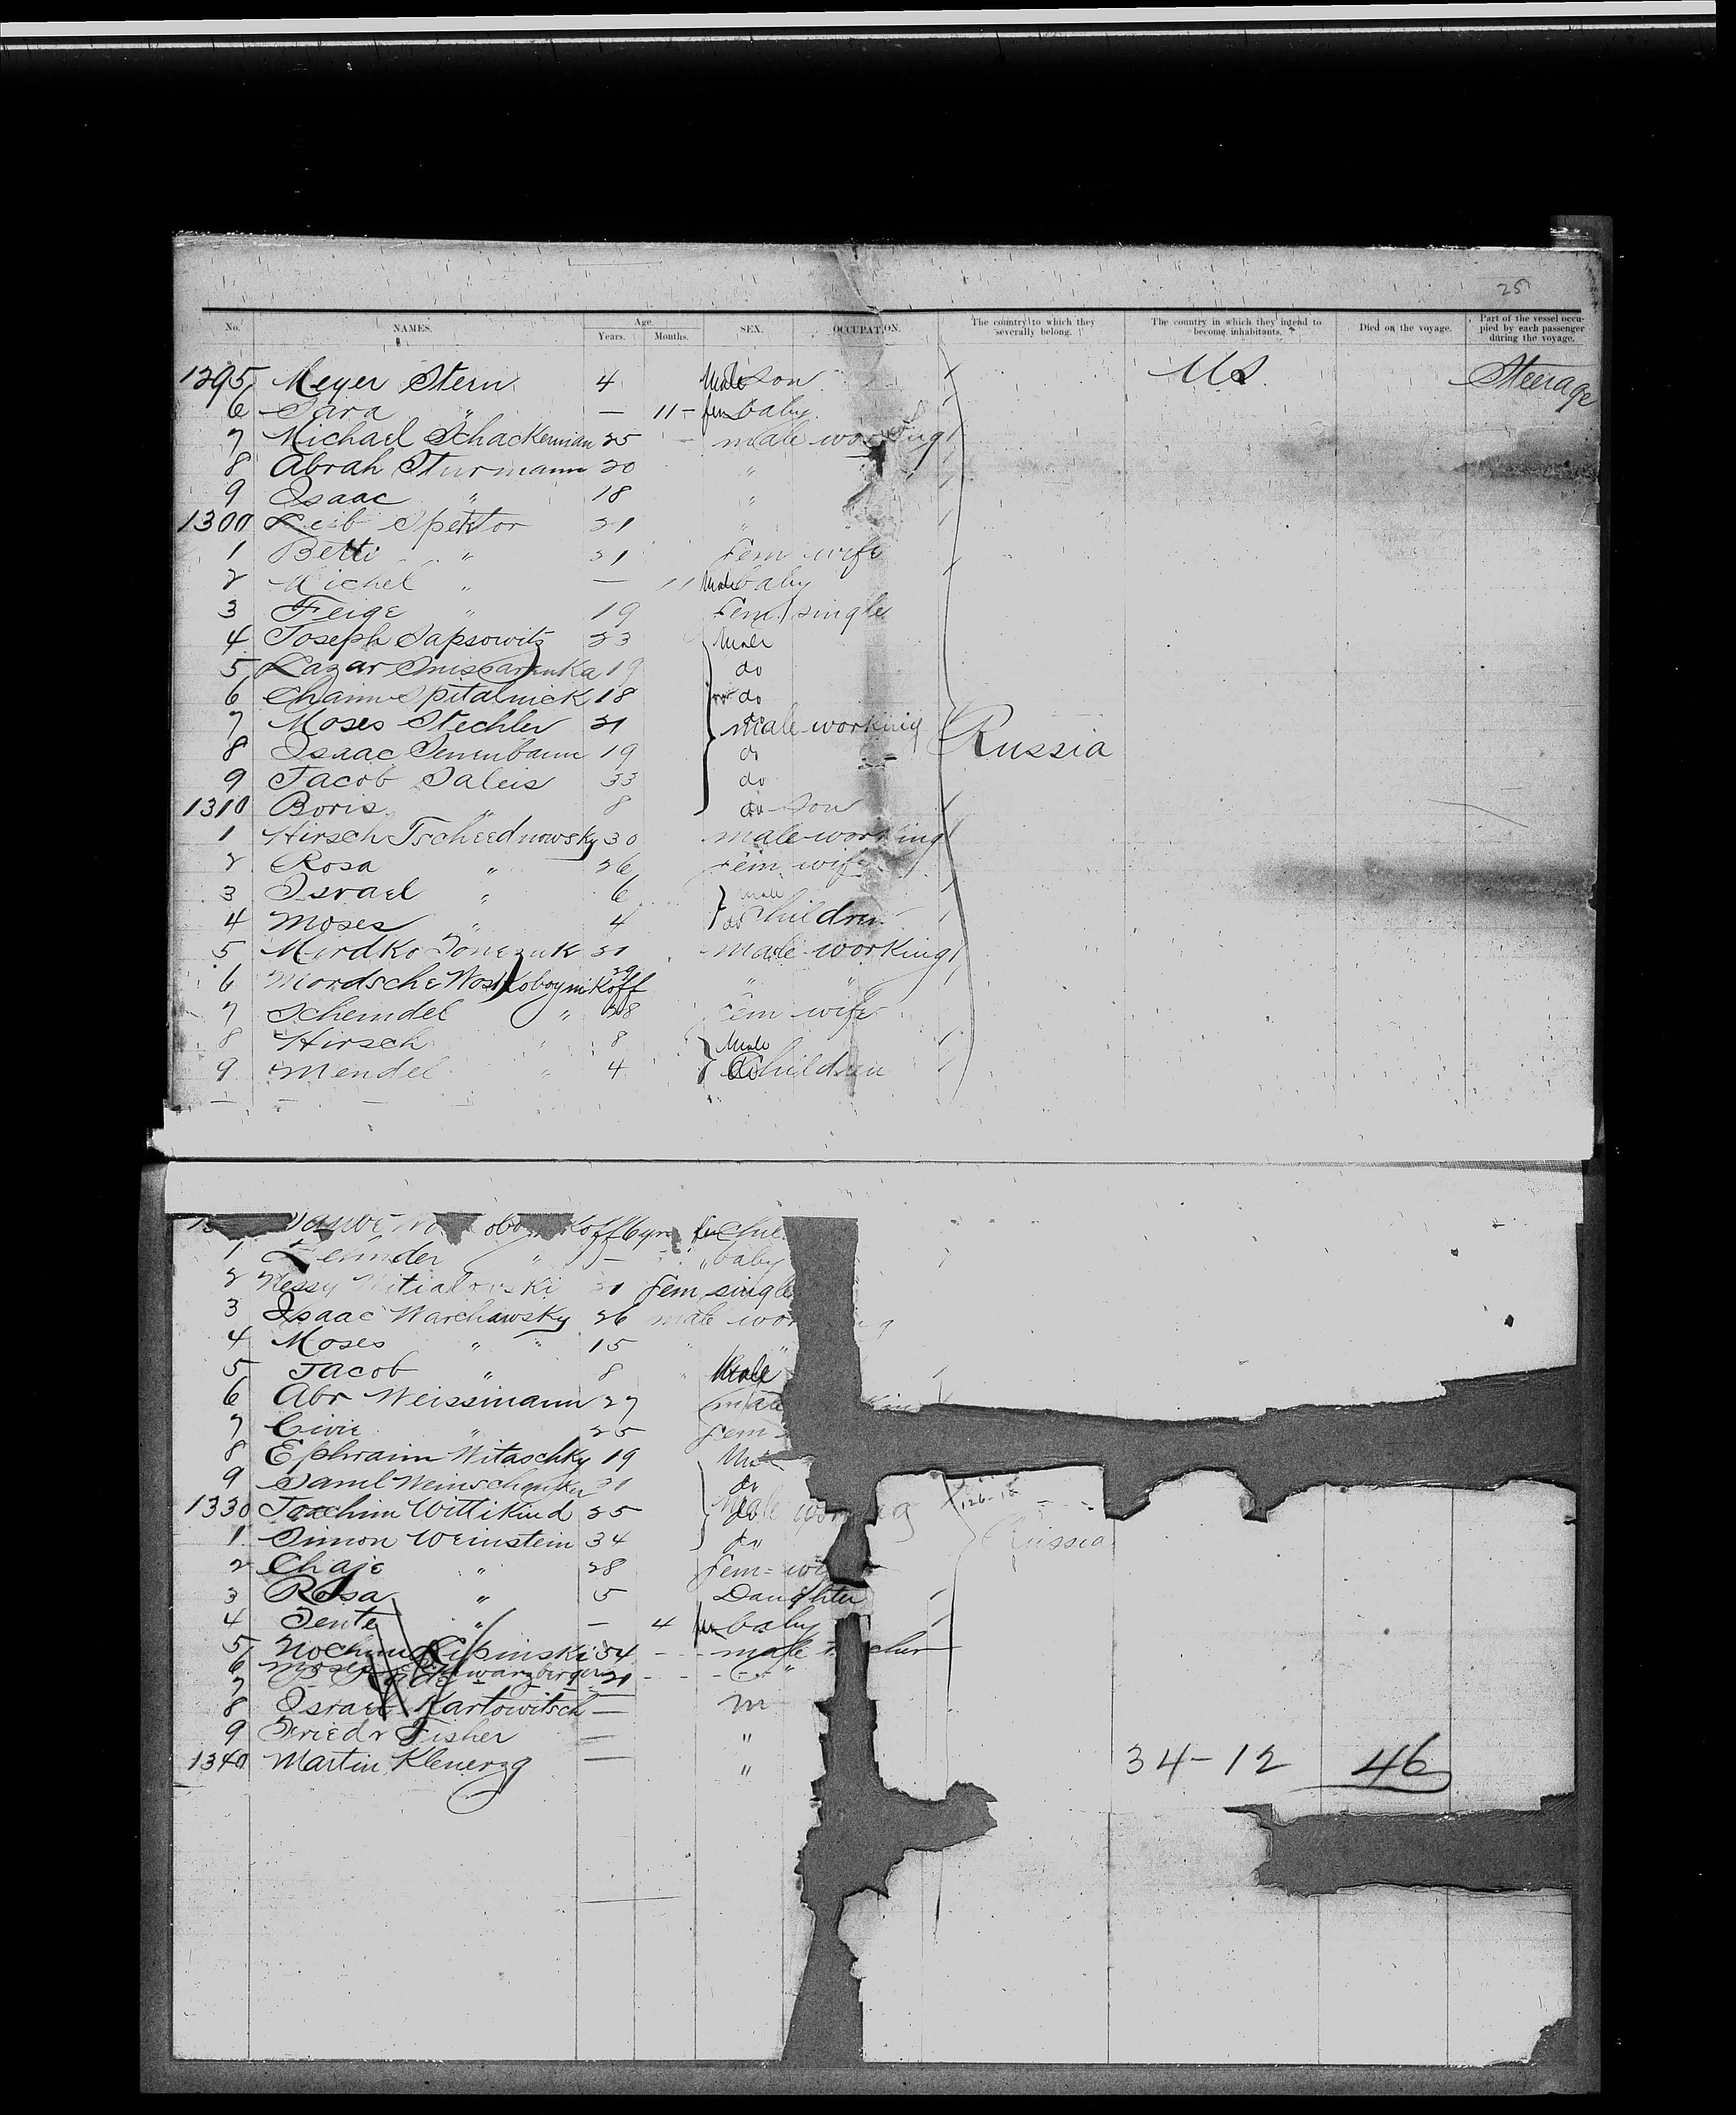 251
No. NAMES. Age. Years. Months. SEX. OCCUPATION. The country to which they severally belong. The country in which they intend to become inhabitants. Died on the voyage. Part of the vessel occupied by each passenger during the voyage.
1295 Meyer Stern 4 Male son US Steerage
6 Sara " — 11 - fem baby
7 Michael Schackerman 25 - male working
8 Abrah Sturmann 20 "
9 Isaac " 18 "
1300 Leib Spektor 21 "
1 Betti " 21 Fem wife
2 Michel " — 11 Male baby
3 Feige " 19 Fem single
4 Joseph Sapsowitz 23 Male
5 Lazar 19 do
6 Chaim Spitalnick 18 do
7 Moses Stechler 21 male working
8 Isaac Tennbaum 19 do Russia
9 Jacob Saleis 33 do
1310 Boris " 8 do son
1 Hirsch Tscheednowsky 30 male working
2 Rosa " 26 Fem wife
3 Israel " 6 male
4 Moses " 4 do children
5 Mirdko 21 male working
6 Mordsche Woskoboynikoff 29 " "
7 Scheindel " 28 Fem wife
8 Hirsch " 8 Male
9 Mendel " 4 do Children
koff 6 yrs fem Chil
1 " — " baby
2 Hessy 21 Fem single
3 Isaac Warchawsky 26 male wor
4 Moses " " 15 "
5 Jacob " 8 " Male
6 Abr Weissmann 27 male
7 Civie " 25 Fem
8 Ephraim Witaschky 19 Male
9 Saml Weinschenker 21 do
1330 Joachim Wittikind 25 Male working 126-16
1 Simon Weinstein 34 do Russia
2 Chaje " 28 Fem = wi
3 Rosa " 5 Daughter
4 Tente " — 4 fem baby
5 Nochum Lipinski 34 - - - male
6 Moses Schwarzberger
7 21 - - -
8 Israel Kartowitsch — m
9 Friedr Fisher — "
1340 Martin Klenerzg — " 34-12 46